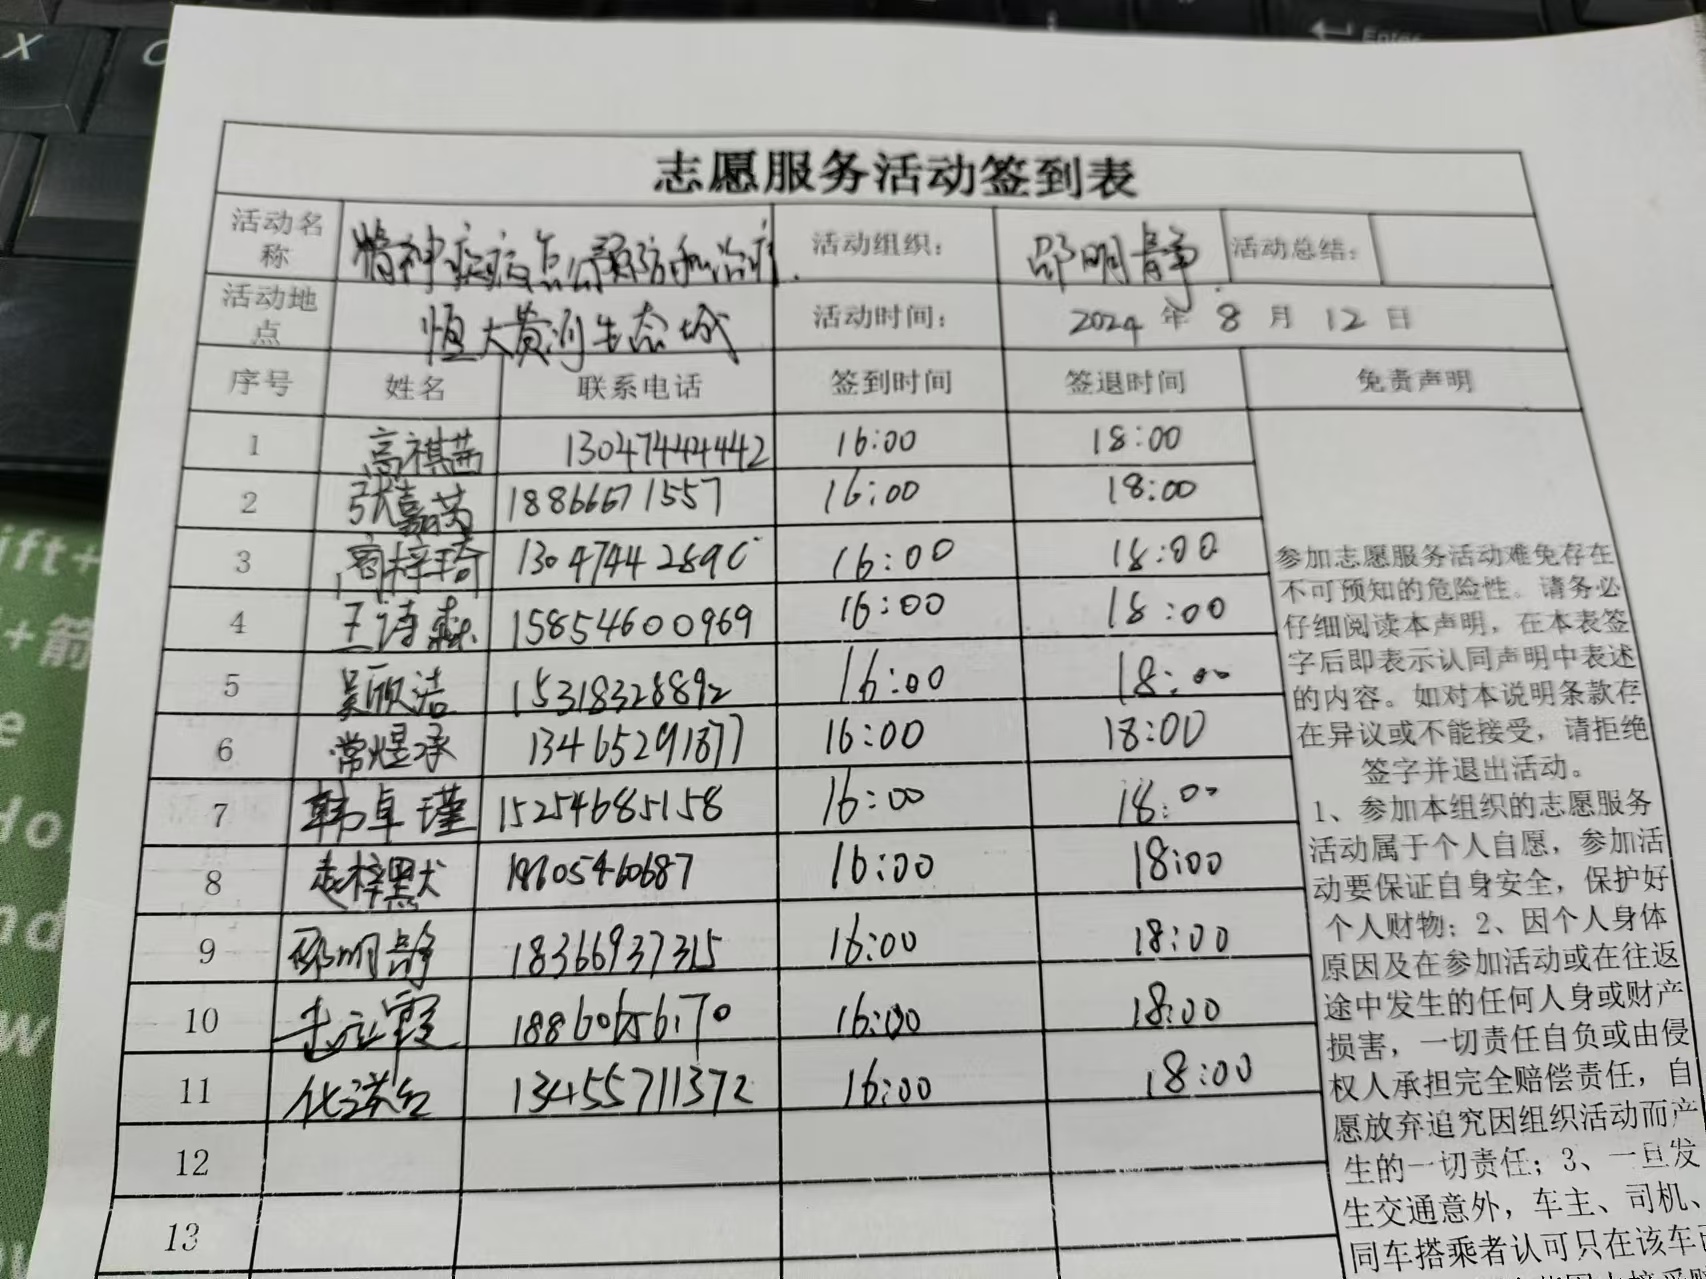 X
C
Enter
志愿服务活动签到表
活动名称 精神疾病怎么预防和治疗. 活动组织： 邵明静 活动总结：
活动地点 恒大黄河生态城 活动时间： 2024 年 8 月 12 日
序号 姓名 联系电话 签到时间 签退时间 免责声明
1 高祺茜 13047444442 16:00 18:00
2 张嘉芮 18866671557 16:00 18:00
3 梓琦 1304744289 16:00 18:00
4 王诗淼 15854600969 16:00 18:00
5 吴欣洁 15318328892 16:00 18:00
6 常煜承 13465291877 16:00 18:00
7 韩卓瑾 15254685158 16:00 18:00
8 赵梓默 18605460687 16:00 18:00
9 邵明静 18366937315 16:00 18:00
10 霞 16:00 18:00
11 13455711372 16:00 18:00
12
13
参加志愿服务活动难免存在
不可预知的危险性。请务必
仔细阅读本声明，在本表签
字后即表示认同声明中表述
的内容。如对本说明条款存
在异议或不能接受，请拒绝
签字并退出活动。
1、参加本组织的志愿服务
活动属于个人自愿，参加活
动要保证自身安全，保护好
个人财物；2、因个人身体
原因及在参加活动或在往返
途中发生的任何人身或财产
损害，一切责任自负或由侵
权人承担完全赔偿责任，自
愿放弃追究因组织活动而产
生的一切责任；3、一旦发
生交通意外，车主、司机、
同车搭乘者认可只在该车
ift+
+箭
e
do
nd
w